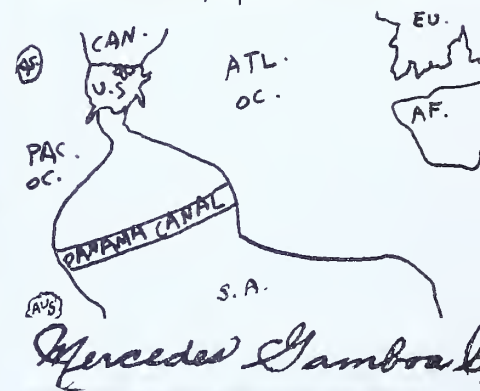 CAN.
EU.
AS.
U.S
ATL.
OC.
AF.
PAC.
OC.
PANAMA CANAL
S.A.
AUS
Mercedes Gamboa